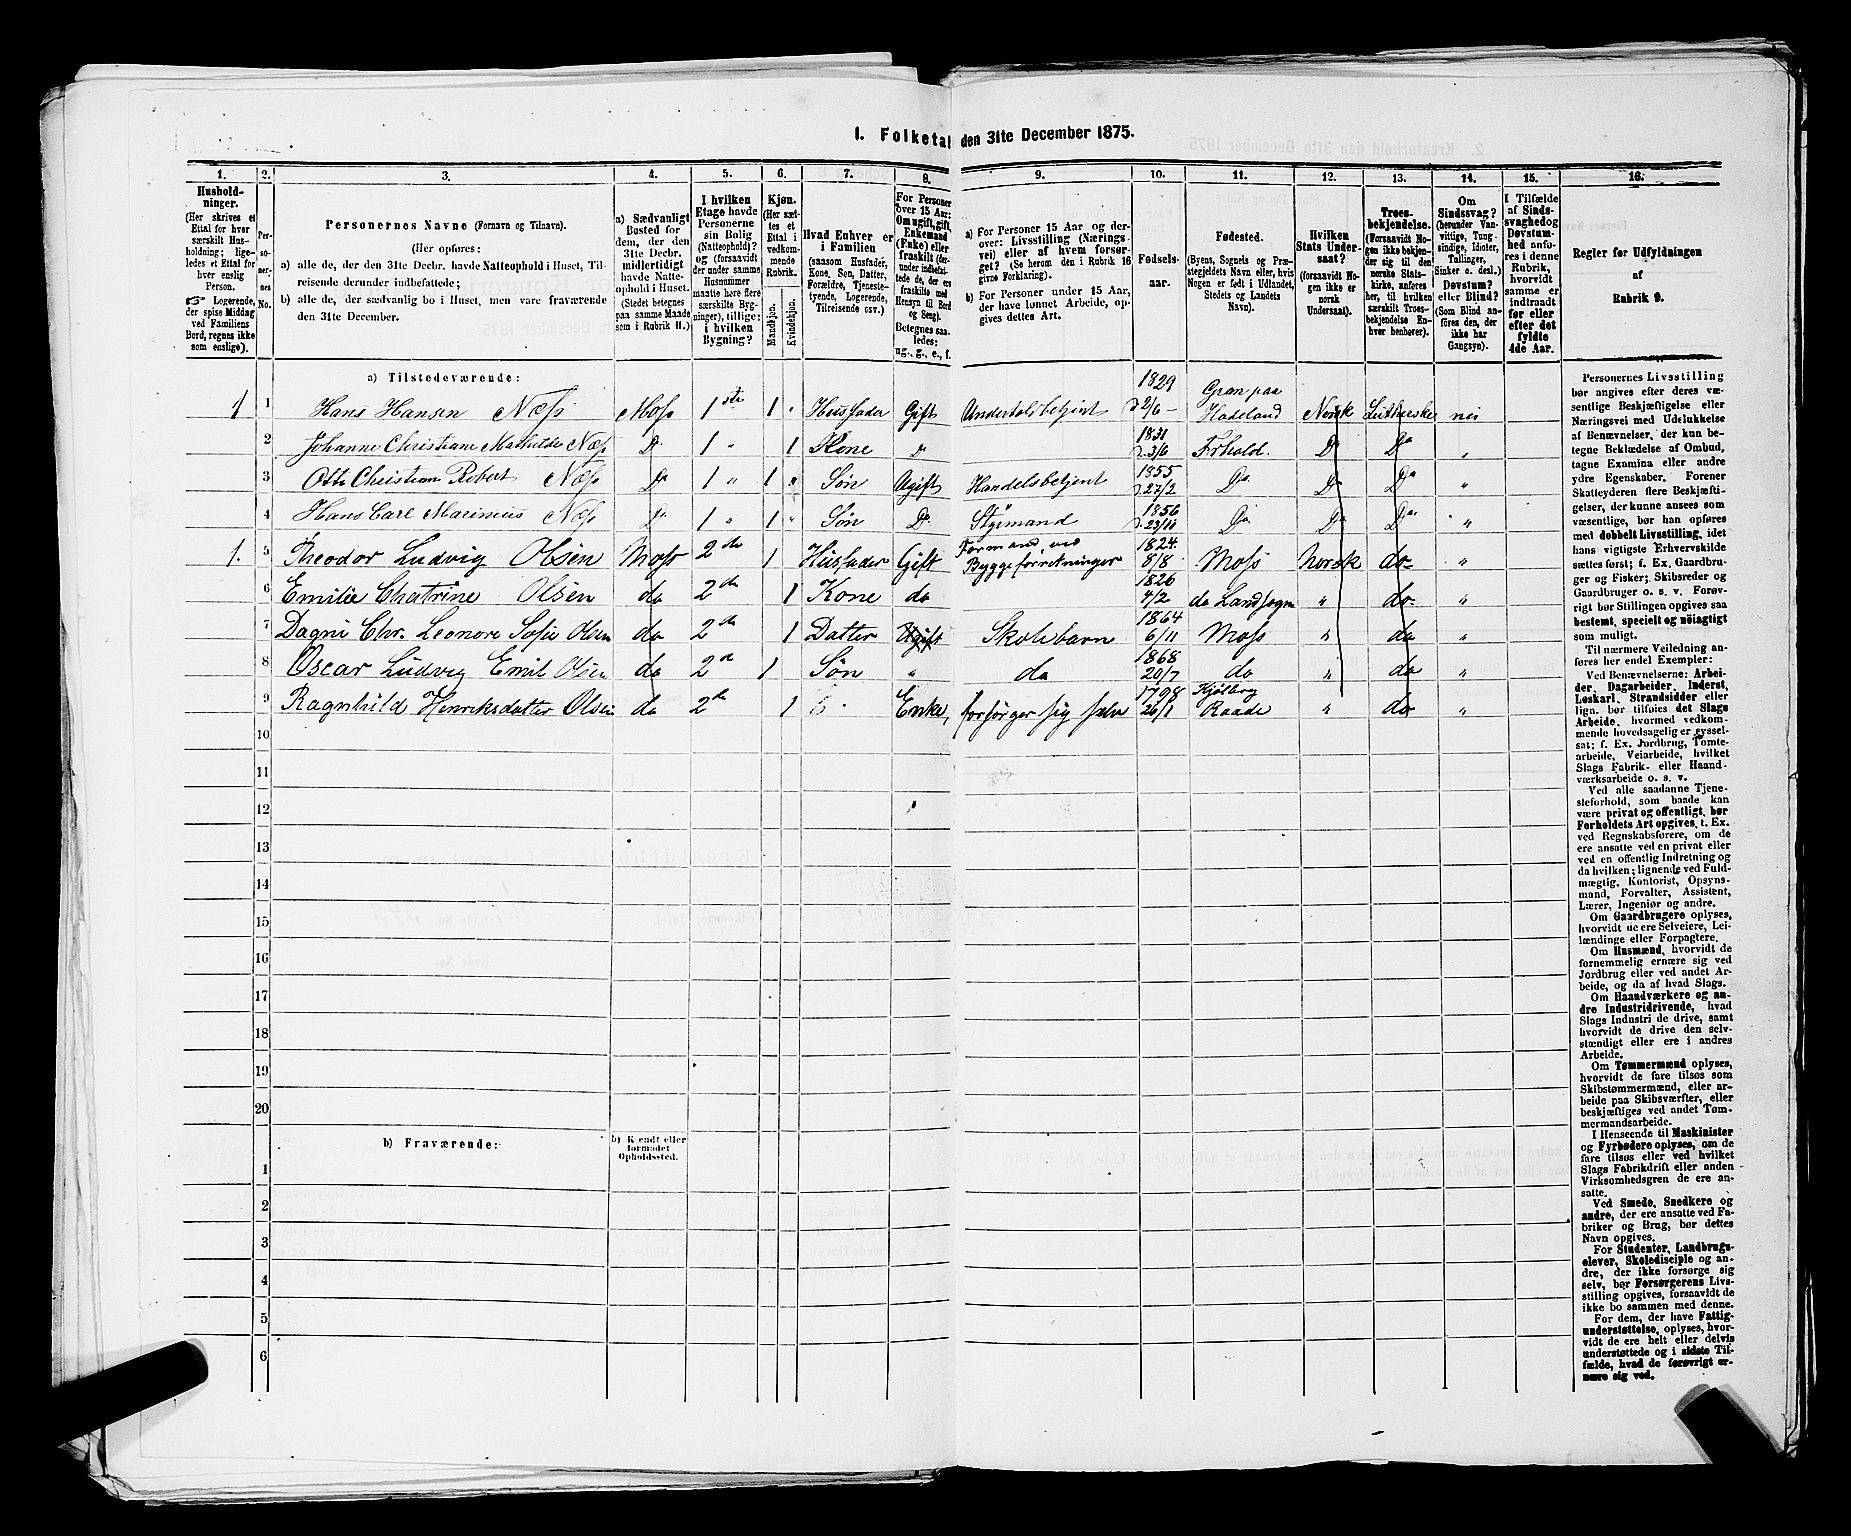 1. Folketal den 31te December 1875.
1. 2. 3. 4. 5. 6. 7. 8. 9. 10. 11. 12. 13. 14. 15. 16.
Hushold-
ninger.
(Her skrives et
Ettal for hver
særskilt Hus-
holdning; lige-
ledes et Ettal for
hver enslig
Person.
☞ Logerende,
der spise Middag
ved Familiens
Bord, regnes ikke
som enslige).
Per-
so-
ner-
nes
No.
Personernes Navne (Fornavn og Tilnavn).
(Her opføres:
a) alle de, der den 31te Decbr. havde Natteophold i Huset, Til-
reisende derunder indbefattede;
b) alle de, der sædvanlig bo i Huset, men vare fraværende
den 31te December.
a) Sædvanligt
Bosted for
dem, der den
31te Decbr.
midlertidigt
havde Natte-
ophold i Huset.
(Stedet betegnes
paa samme Maade
som i Rubrik 11.)
I hvilken
Etage havde
Personerne
sin Bolig
(Natteophold)?
og (forsaavidt
der under samme
Husnummer
maatte høre flere
særskilte Byg-
ninger), tillige:
i hvilken
Bygning?
Kjøn.
(Her sæt-
tes et
Ettal i
vedkom-
mende
Rubrik.)
Mandkjøn.
Kvindekjøn.
Hvad Enhver er
i Familien
(saasom Husfader,
Kone, Søn, Datter,
Forældre, Tjeneste-
tyende, Logerende,
Tilreisende osv.)
For Personer
over 15 Aar:
Om ugift, gift,
Enkemand
(Enke) eller
fraskilt (der-
under indbefat-
tede de, der ere
fraskilte med
Hensyn til Bord
og Seng).
Betegnes saa-
ledes:
ug., g., e., f.
a) For Personer 15 Aar og der-
over: Livsstilling (Nærings-
vei) eller af hvem forsør-
get? (Se herom den i Rubrik 16
givne Forklaring).
b) For Personer under 15 Aar,
der have lønnet Arbeide, op-
gives dettes Art.
Fødsels-
aar.
Fødested.
(Byens, Sognets og Præ-
stegjeldets Navn eller, hvis
Nogen er født i Udlandet,
Stedets og Landets
Navn).
Hvilken
Stats Under-
saat?
(forsaavidt No-
gen ikke er
norsk
Undersaat).
Troes-
bekjendelse.
(Forsaavidt No-
gen ikke bekjen-
der sig til den
norske Stats-
kirke, anføres
her, til hvilken
særskilt Troes-
bekjendelse En-
hver henhører).
Om
Sindssvag?
(herunder Van-
vittige, Tung-
sindige, Idioter,
Tullinger,
Sinker o. desl.)
Døvstum?
eller Blind?
(Som Blind an-
føres den, der
ikke har
Gangsyn).
I Tilfælde
af Sinds-
svaghed og
Døvstum-
hed anfø-
res i denne
Rubrik,
hvorvidt
samme er
indtraadt
før eller
efter det
fyldte
4de Aar.
Regler for Udfyldningen
af
Rubrik 9.
a) Tilstedeværende:
1 1 Hans Hansen Næss Moss 1ste 1 Husfader Gift Undertolsbetjent 1829 2/6 Gran paa Hadeland Norsk Lutherske nei
2 Johanne Christiane Mathilde Næss Do 1 " 1 Kone Do 1831 3/6 Frhold. Do Do "
3 Otto Christian Robert Næss Do 1 " 1 Søn Ugift Handelsbetjent 1855 27/2 Do Do Do "
4 Hans Carl Marinius Næss Do 1 " 1 Søn Do Styrmand 1856 23/10 Do Do Do "
1. 5 Theodor Ludvig Olsen Moss 2den 1 Husfader Gift Formand ved Byggeforretninger 1824 8/8 Moss Norsk do "
6 Emilie Chatrine Olsen do 2den 1 Kone do 1826 4/2 do Landsogn " do "
7 Dagni Chr. Leonore Sofie Olsen do 2d 1 Datter Ugift Skolebarn 1864 6/11 Moss " do "
8 Oscar Ludvig Emil Olsen do 2d 1 Søn " do 1868 20/7 do " do "
9 Ragnhild Henriksdatter Olsen do 2den 1 Enke, forsørger sig selv 1798 26/1 Raade " do "
10
11
12
13
14
15
16
17
18
19
20
b) Fraværende: b) Kjendt eller
formodet
Opholdssted.
1
2
3
4
5
6
Personernes Livsstilling
bør angives efter deres væ-
sentlige Beskjæftigelse eller
Næringsvei med Udelukkelse
af Benævnelser, der kun be-
tegne Beklædelse af Ombud,
tagne Examina eller andre
ydre Egenskaber. Forener
Skatteyderen flere Beskjæfti-
gelser, der kunne ansees som
væsentlige, bør han opføres
med dobbelt Livsstilling, idet
hans vigtigste Erhvervskilde
sættes først; f. Ex. Gaardbru-
ger og Fisker; Skibsreder og
Gaardbruger o. s. v. Forøv-
rigt bør Stillingen opgives saa
bestemt, specielt og nöiagtigt
som muligt.
Til nærmere Veiledning an-
føres her endel Exempler:
Ved Benævnelserne: Arbei-
der, Dagarbeider, Inderst,
Løskarl, Strandsidder eller
lign. bør tilføies det Slags
Arbeide, hvormed vedkom-
mende hovedsagelig er syssel-
sat; f. Ex. Jordbrug, Tomte-
arbeide, Veiarbeide, hvilket
Slags Fabrik- eller Haand-
værksarbeide o. s. v.
Ved alle saadanne Tjene-
steforhold, som baade kan
være privat og offentligt, bør
Forholdets Art opgives, t. Ex.
ved Regnskabsførere, om de
ere ansatte ved en privat eller
ved en offentlig Indretning og
da hvilken; lignende ved Fuld-
mægtig, Kontorist, Opsyns-
mand, Forvalter, Assistent,
Lærer, Ingeniør og andre.
Om Gaardbrugere oplyses,
hvorvidt de ere Selveiere, Lei-
lændinge eller Forpagtere.
Om Husmænd, hvorvidt de
fornemmelig ernære sig ved
Jordbrug eller ved andet Ar-
beide, og da af hvad Slags.
Om Haandværkere og an-
dre Industridrivende, hvad
Slags Industri de drive, samt
hvorvidt de drive den selv-
stændigt eller ere i andres
Arbeide.
Om Tømmermænd oplyses,
hvorvidt de fare tilsøs som
Skibstømmermænd, eller ar-
beide paa Skibsværfter, eller
beskjæftiges ved andet Tøm-
mermandsarbeide.
I Henseende til Maskinister
og Fyrbødere oplyses, om de
fare tilsøs eller ved hvilket
Slags Fabrikdrift eller anden
Virksomhedsgren de ere an-
satte.
Ved Smede, Snedkere og
andre, der ere ansatte ved Fa-
briker og Brug, bør dettes
Navn opgives.
For Studenter, Landbrugs-
elever, Skoledisciple og an-
dre, der ikke forsørge sig
selv, bør Forsørgerens Livs-
stilling opgives, forsaavidt de
ikke bo sammen med denne.
For dem, der have Fattig-
understøttelse, oplyses, hvor-
vidt de ere helt eller delvis
understøttede og i sidste Til-
fælde, hvad de forøvrigt er-
nære sig ved.